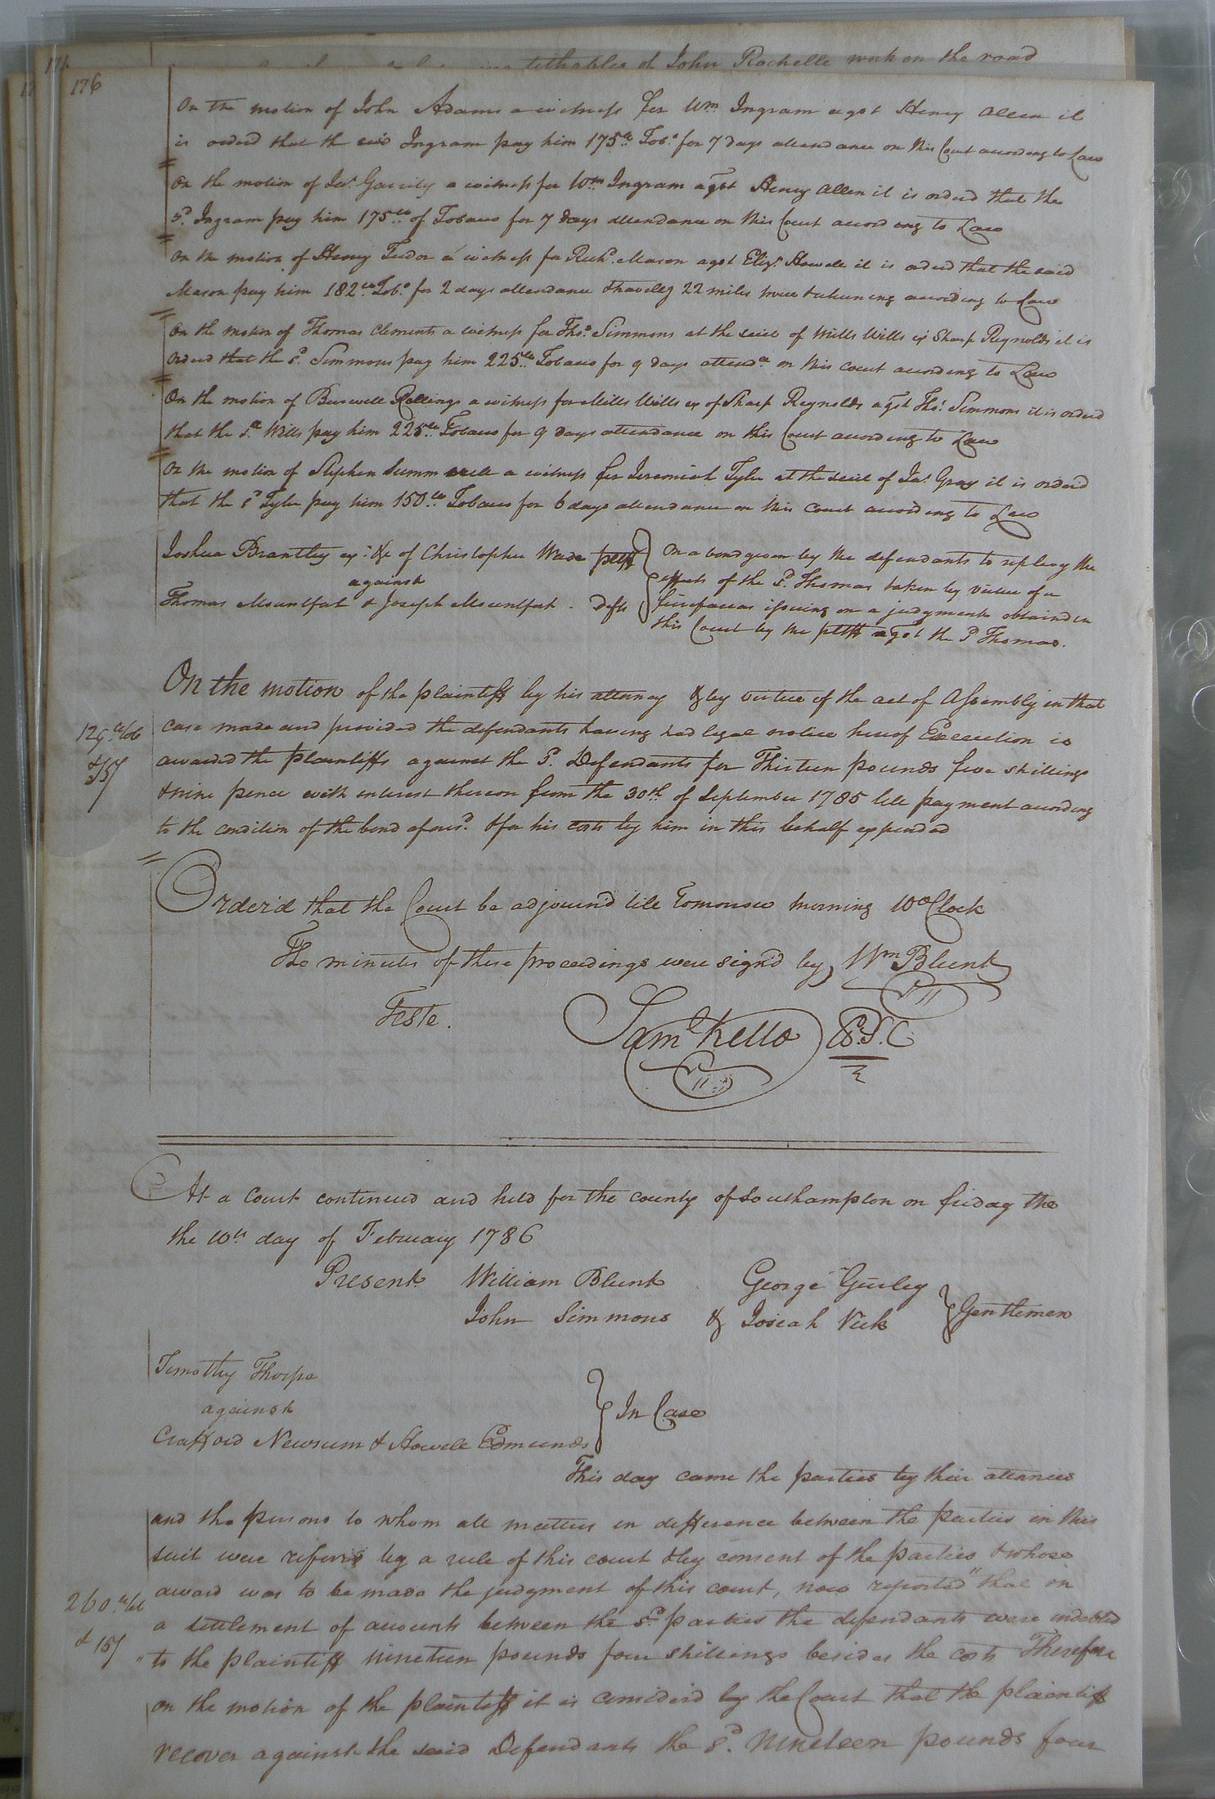 tithables of John Rochelle work on the road
176
On the motion of John Adams a witness for Wm Ingram agst Henry Allen it
is orderd that the said Ingram pay him 175 lb Tobo for 7 days attendance on this Court according to Law
On the motion of Jas Garrity a witness for Wm Ingram agst Henry Allen it is orderd that the
sd Ingram pay him 175 lb of Tobacco for 7 days attendance on this Court according to Law
On the motion of Henry Tudor a witness for Richd Mason agst Elizt Howell it is orderd that the said
Mason pay him 182 lb Tobo for 2 days attendance & traveleg 22 miles twice & returning according to Law
On the motion of Thomas Clements a witness for Thos Simmons at the suit of Mills Wills ex Sharp Reynolds it is
orderd that the sd Simmons pay him 225 lb Tobacco for 9 days attendce on this court according to Law
On the motion of Burwell Rollings a witness for Mills Wills ex of Sharp Reynolds agst Thos Simmons it is orderd
that the sd Wills pay him 225 lb Tobacco for 9 days attendance on this Court according to Law
On the motion of Stephen Summerell a witness for Jeremiah Tyler at the suit of Jas Gray it is orderd
that the sd Tyler pay him 150 lb Tobacco for 6 days attendance on this Court according to Law
Joshua Brantley ex: &c of Christopher Wade pltff
against
Thomas Mountfort & Joseph Mountfort Defts
On a bond given by the defendants to replevy the
effects of the sd Thomas taken by virtue of a
fierifacias issuing on a judgment obtaind in
this Court by the pltff agst the sd Thomas.
On the motion of the plaintiff by his attorney & by virtue of the act of Assembly in that
case made and provided the defendants having had legal notice hereof Execution is
awarded the plaintiffs against the sd Defendants for Thirteen pounds five shillings
& nine pence with interest thereon from the 30th of September 1785 till payment according
to the condition of the bond aforesd & for his costs by him in this behalf expended
129 lb Tob
& 15/
Order'd that the Court be adjournd till Tomorrow morning 10 oClock
The minutes of these proceedings were sign'd by Wm Blunt
Teste. Saml Kello C.S.C
At a Court continued and held for the county of Southampton on friday the
the 10th day of February 1786
Present William Blunt George Gurley
John Simmons & Josiah Vick Gentlemen
Timothy Thorpe
against
Crafford Newsum & Howell Edmunds
In Case
This day came the parties by their attornies
and the persons to whom all matters in difference between the parties in this
suit were referrd by a rule of this court & by consent of the parties & whose
award was to be made the judgment of this court, now reported "that on
a settlement of accounts between the sd parties the defendants were indebted
" to the plaintiff nineteen pounds four shillings besides the costs Therefore
on the motion of the plaintiff it is considerd by the Court that the plaintiff
recover against the said Defendants the sd Nineteen pounds four
260 lb Tob
& 15/